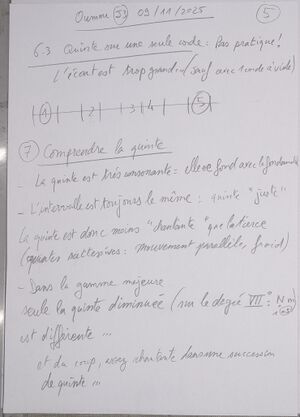 Oumou 53 09/11/2025 5
6.3 Quinte sur une seule corde : Pas pratique !
L'écart est trop grand (sauf avec 1 corde à vide)
|①| |2| |3|4| |⑤|
⑦ Comprendre la quinte
- La quinte est très consonante = elle se fond avec le fondamentale
- L'intervalle est toujours le même : quinte "juste"
La quinte est donc moins "chantante" que la tierce
(quintes successives : mouvement parallèle, froid)
- Dans la gamme majeure
seule la quinte diminuée (sur le degré VII° :
est différente ...
et du coup, assez chantante dans une succession
de quinte ...